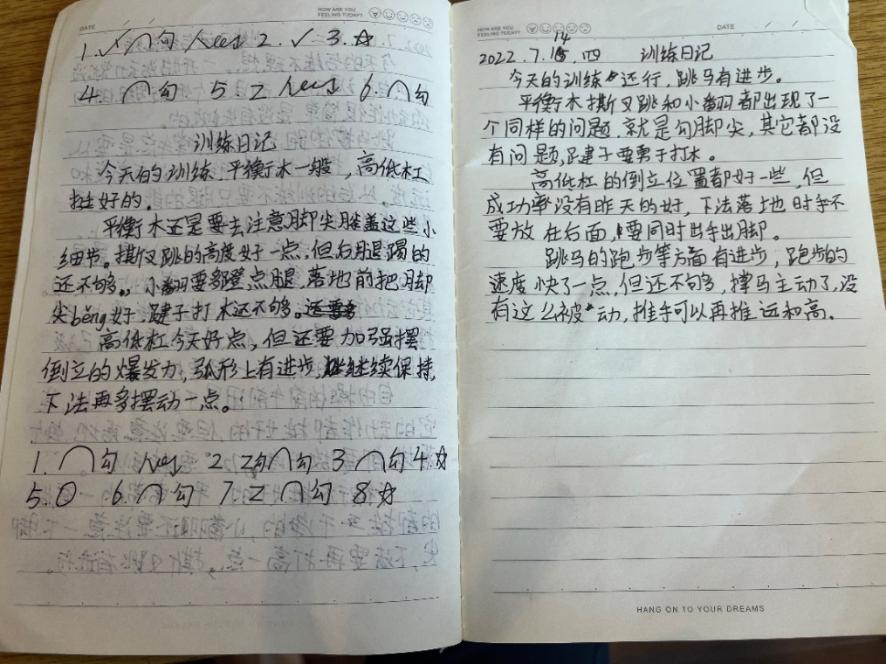 DATE
HOW ARE YOU
FEELING TODAY?
1. ✓⌒勾 2. ✓ 3. ☆
4. ⌒勾 5 Z 6. ⌒勾
训练日记
今天的训练 平衡木一般，高低杠
挺好的。
平衡木还是要去注意脚尖膝盖这些小
细节。撕叉跳的高度好一点，但后腿踢的
还不够。小翻要多蹬点腿，落地前把脚
尖bēng好 踺子打木还不够。
高低杠今天好点，但还要加强摆
倒立的爆发力，弧形上有进步，继续保持，
下法再多摆动一点。
1. ⌒勾 2 Z勾⌒勾 3 ⌒勾 4.☆
5. O 6. ⌒勾 7. Z ⌒勾 8.☆
HOW ARE YOU
FEELING TODAY?
DATE
2022.7.14.四 训练日记
今天的训练还行，跳马有进步。
平衡木撕叉跳和小翻都出现了一
个同样的问题，就是勾脚尖，其它都没
有问题，踺子要勇于打木。
高低杠的倒立位置都好一些，但
成功率没有昨天的好，下法落地时手不
要放在后面，要同时出手出脚。
跳马的跑步等方面有进步，跑步的
速度快了一点，但还不够，撑马主动了，没
有这么被动，推手可以再推远和高。
HANG ON TO YOUR DREAMS